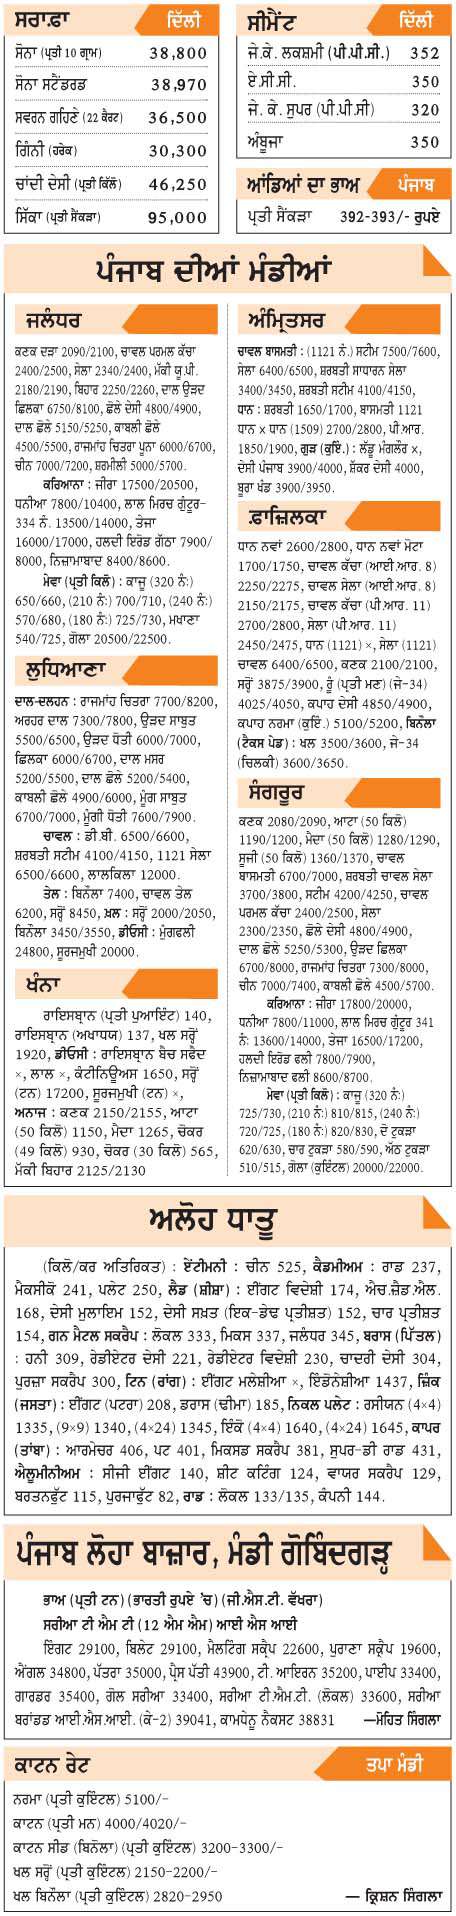 ਸਰਾ.ਫ਼ਾ ਦਿੱਲੀ
ਸੋਨਾ (ਪ੍ਰਤੀ 10 ਗ੍ਰਾਮ) 38,800
ਸੋਨਾ ਸਟੈਂਡਰਡ 38,970
ਸਵਰਨ ਗਹਿਣੇ (22 ਕੈਰਟ) 36,500
ਗਿੰਨੀ (ਹਰੇਕ) 30,300
ਚਾਂਦੀ ਦੇਸੀ (ਪ੍ਰਤੀ ਕਿੱਲੋ) 46,250
ਸਿੱਕਾ (ਪ੍ਰਤੀ ਸੈਂਕੜਾ) 95,000
ਸੀਮੈਂਟ ਦਿੱਲੀ
ਜੇ.ਕੇ. ਲਕਸ਼ਮੀ (ਪੀ.ਪੀ.ਸੀ.) 352
ਏ.ਸੀ.ਸੀ. 350
ਜੇ. ਕੇ. ਸੁਪਰ (ਪੀ.ਪੀ.ਸੀ) 320
ਅੰਬੂਜਾ 350
ਆਂਡਿਆਂ ਦਾ ਭਾਅ ਪੰਜਾਬ
ਪ੍ਰਤੀ ਸੈਂਕੜਾ 392-393/- ਰੁਪਏ
ਪੰਜਾਬ ਦੀਆਂ ਮੰਡੀਆਂ
ਜਲੰਧਰ
ਕਣਕ ਦੜਾ 2090/2100, ਚਾਵਲ ਪਰਮਲ ਕੱਚਾ
2400/2500, ਸੇਲਾ 2340/2400, ਮੱਕੀ ਯੂ.ਪੀ.
2180/2190, ਬਿਹਾਰ 2250/2260, ਦਾਲ ਉੜਦ
ਛਿਲਕਾ 6750/8100, ਛੋਲੇ ਦੇਸੀ 4800/4900,
ਦਾਲ ਛੋਲੇ 5150/5250, ਕਾਬਲੀ ਛੋਲੇ
4500/5500, ਰਾਜਮਾਂਹ ਚਿਤਰਾ ਪੂਨਾ 6000/6700,
ਚੀਨ 7000/7200, ਸ਼ਰਮੀਲੀ 5000/5700.
ਕਰਿਆਨਾ : ਜੀਰਾ 17500/20500,
ਧਨੀਆ 7800/10400, ਲਾਲ ਮਿਰਚ ਗੁੰਟੂਰ-
334 ਨੰ. 13500/14000, ਤੇਜਾ
16000/17000, ਹਲਦੀ ਇਰੋਡ ਗੱਠਾ 7900/
8000, ਨਿਜ਼ਾਮਾਬਾਦ 8400/8600.
ਮੇਵਾ (ਪ੍ਰਤੀ ਕਿਲੋ) : ਕਾਜੂ (320 ਨੰ:)
650/660, (210 ਨੰ:) 700/710, (240 ਨੰ:)
570/680, (180 ਨੰ:) 725/730, ਮਖਾਣਾ
540/725, ਗੋਲਾ 20500/22500.
ਲੁਧਿਆਣਾ
ਦਾਲ-ਦਲਹਨ : ਰਾਜਮਾਂਹ ਚਿਤਰਾ 7700/8200,
ਅਰਹਰ ਦਾਲ 7300/7800, ਉੜਦ ਸਾਬੁਤ
5500/6500, ਉੜਦ ਧੋਤੀ 6000/7000,
ਛਿਲਕਾ 6000/6700, ਦਾਲ ਮਸਰ
5200/5500, ਦਾਲ ਛੋਲੇ 5200/5400,
ਕਾਬਲੀ ਛੋਲੇ 4900/6000, ਮੂੰਗ ਸਾਬੁਤ
6700/7000, ਮੂੰਗੀ ਧੋਤੀ 7600/7900.
ਚਾਵਲ : ਡੀ.ਬੀ. 6500/6600,
ਸ਼ਰਬਤੀ ਸਟੀਮ 4100/4150, 1121 ਸੇਲਾ
6500/6600, ਲਾਲਕਿਲਾ 12000.
ਤੇਲ : ਬਿਨੌਲਾ 7400, ਚਾਵਲ ਤੇਲ
6200, ਸਰ੍ਹੋਂ 8450, ਖ਼ਲ : ਸਰ੍ਹੋਂ 2000/2050,
ਬਿਨੌਲਾ 3450/3550, ਡੀਓਸੀ : ਮੂੰਗਫਲੀ
24800, ਸੂਰਜਮੁਖੀ 20000.
ਖੰਨਾ
ਰਾਇਸਬ੍ਰਾਨ (ਪ੍ਰਤੀ ਪੁਆਇੰਟ) 140,
ਰਾਇਸਬ੍ਰਾਨ (ਅਖਾਧਯ) 137, ਖਲ ਸਰ੍ਹੋਂ
1920, ਡੀਓਸੀ : ਰਾਇਸਬ੍ਰਾਨ ਬੈਚ ਸਫੈਦ
×, ਲਾਲ ×, ਕੰਟੀਨਿਊਅਸ 1650, ਸਰ੍ਹੋਂ
(ਟਨ) 17200, ਸੂਰਜਮੁਖੀ (ਟਨ) ×,
ਅਨਾਜ : ਕਣਕ 2150/2155, ਆਟਾ
(50 ਕਿਲੋ) 1150, ਮੈਦਾ 1265, ਚੋਕਰ
(49 ਕਿਲੋ) 930, ਚੋਕਰ (30 ਕਿਲੋ) 565,
ਮੱਕੀ ਬਿਹਾਰ 2125/2130
ਅੰਮ੍ਰਿਤਸਰ
ਚਾਵਲ ਬਾਸਮਤੀ : (1121 ਨੰ.) ਸਟੀਮ 7500/7600,
ਸੇਲਾ 6400/6500, ਸ਼ਰਬਤੀ ਸਾਧਾਰਨ ਸੇਲਾ
3400/3450, ਸ਼ਰਬਤੀ ਸਟੀਮ 4100/4150,
ਧਾਨ : ਸ਼ਰਬਤੀ 1650/1700, ਬਾਸਮਤੀ 1121
ਧਾਨ x ਧਾਨ (1509) 2700/2800, ਪੀ.ਆਰ.
1850/1900, ਗੁੜ (ਕੁਇੰ.) : ਲੱਡੂ ਮੰਗਲੌਰ x,
ਦੇਸੀ ਪੰਜਾਬ 3900/4000, ਸ਼ੱਕਰ ਦੇਸੀ 4000,
ਬੂਰਾ ਖੰਡ 3900/3950.
ਫ਼ਾਜ਼ਿਲਕਾ
ਧਾਨ ਨਵਾਂ 2600/2800, ਧਾਨ ਨਵਾਂ ਮੋਟਾ
1700/1750, ਚਾਵਲ ਕੱਚਾ (ਆਈ.ਆਰ. 8)
2250/2275, ਚਾਵਲ ਸੇਲਾ (ਆਈ.ਆਰ. 8)
2150/2175, ਚਾਵਲ ਕੱਚਾ (ਪੀ.ਆਰ. 11)
2700/2800, ਸੇਲਾ (ਪੀ.ਆਰ. 11)
2450/2475, ਧਾਨ (1121) ×, ਸੇਲਾ (1121)
ਚਾਵਲ 6400/6500, ਕਣਕ 2100/2100,
ਸਰ੍ਹੋਂ 3875/3900, ਰੂੰ (ਪ੍ਰਤੀ ਮਣ) (ਜੇ-34)
4025/4050, ਕਪਾਹ ਦੇਸੀ 4850/4900,
ਕਪਾਹ ਨਰਮਾ (ਕੁਇੰ.) 5100/5200, ਬਿਨੌਲਾ
(ਟੈਕਸ ਪੇਡ) : ਖਲ 3500/3600, ਜੇ-34
(ਚਿਲਕੀ) 3600/3650.
ਸੰਗਰੂਰ
ਕਣਕ 2080/2090, ਆਟਾ (50 ਕਿਲੋ)
1190/1200, ਮੈਦਾ (50 ਕਿਲੋ) 1280/1290,
ਸੂਜੀ (50 ਕਿਲੋ) 1360/1370, ਚਾਵਲ
ਬਾਸਮਤੀ 6700/7000, ਸ਼ਰਬਤੀ ਚਾਵਲ ਸੇਲਾ
3700/3800, ਸਟੀਮ 4200/4250, ਚਾਵਲ
ਪਰਮਲ ਕੱਚਾ 2400/2500, ਸੇਲਾ
2300/2350, ਛੋਲੇ ਦੇਸੀ 4800/4900,
ਦਾਲ ਛੋਲੇ 5250/5300, ਉੜਦ ਛਿਲਕਾ
6700/8000, ਰਾਜਮਾਂਹ ਚਿਤਰਾ 7300/8000,
ਚੀਨ 7000/7400, ਕਾਬਲੀ ਛੋਲੇ 4500/5700.
ਕਰਿਆਨਾ : ਜੀਰਾ 17800/20000,
ਧਨੀਆ 7800/11000, ਲਾਲ ਮਿਰਚ ਗੁੰਟੂਰ 341
ਨੰ: 13600/14000, ਤੇਜਾ 16500/17200,
ਹਲਦੀ ਇਰੋਡ ਫਲੀ 7800/7900,
ਨਿਜ਼ਾਮਾਬਾਦ ਫਲੀ 8600/8700.
ਮੇਵਾ (ਪ੍ਰਤੀ ਕਿਲੋ) : ਕਾਜੂ (320 ਨੰ:)
725/730, (210 ਨੰ:) 810/815, (240 ਨੰ:)
720/725, (180 ਨੰ:) 820/830, ਦੋ ਟੁਕੜਾ
620/630, ਚਾਰ ਟੁਕੜਾ 580/590, ਅੱਠ ਟੁਕੜਾ
510/515, ਗੋਲਾ (ਕੁਇੰਟਲ) 20000/22000.
ਅਲੋਹ ਧਾਤੂ
(ਕਿਲੋ/ਕਰ ਅਤਿਰਿਕਤ) : ਏਂਟੀਮਨੀ : ਚੀਨ 525, ਕੈਡਮੀਅਮ : ਰਾਡ 237,
ਮੈਕਸੀਕੋ 241, ਪਲੇਟ 250, ਲੈਡ (ਸ਼ੀਸ਼ਾ) : ਈਂਗਟ ਵਿਦੇਸ਼ੀ 174, ਐਚ.ਜ਼ੈਡ.ਐਲ.
168, ਦੇਸੀ ਮੁਲਾਇਮ 152, ਦੇਸੀ ਸਖ਼ਤ (ਇਕ-ਡੇਢ ਪ੍ਰਤੀਸ਼ਤ) 152, ਚਾਰ ਪ੍ਰਤੀਸ਼ਤ
154, ਗਨ ਮੈਟਲ ਸਕਰੈਪ : ਲੋਕਲ 333, ਮਿਕਸ 337, ਜਲੰਧਰ 345, ਬਰਾਸ (ਪਿੱਤਲ)
: ਹਨੀ 309, ਰੇਡੀਏਟਰ ਦੇਸੀ 221, ਰੇਡੀਏਟਰ ਵਿਦੇਸ਼ੀ 230, ਚਾਦਰੀ ਦੇਸੀ 304,
ਪੁਰਜ਼ਾ ਸਕਰੈਪ 300, ਟਿਨ (ਰਾਂਗ) : ਈਂਗਟ ਮਲੇਸ਼ੀਆ ×, ਇੰਡੋਨੇਸ਼ੀਆ 1437, ਜ਼ਿੰਕ
(ਜਸਤਾ) : ਈਂਗਟ (ਪਟਰਾ) 208, ਡਰਾਸ (ਢੀਮਾ) 185, ਨਿਕਲ ਪਲੇਟ : ਰਸੀਯਨ (4×4)
1335, (9×9) 1340, (4×24) 1345, ਇੰਕੋ (4×4) 1640, (4×24) 1645, ਕਾਪਰ
(ਤਾਂਬਾ) : ਆਰਮੇਚਰ 406, ਪਟ 401, ਮਿਕਸਡ ਸਕਰੈਪ 381, ਸੁਪਰ-ਡੀ ਰਾਡ 431,
ਐਲੂਮੀਨੀਅਮ : ਸੀਜੀ ਈਂਗਟ 140, ਸ਼ੀਟ ਕਟਿੰਗ 124, ਵਾਯਰ ਸਕਰੈਪ 129,
ਬਰਤਨਫੁੱਟ 115, ਪੁਰਜਾਫੁੱਟ 82, ਰਾਡ : ਲੋਕਲ 133/135, ਕੰਪਨੀ 144.
ਪੰਜਾਬ ਲੋਹਾ ਬਾਜ਼ਾਰ, ਮੰਡੀ ਗੋਬਿੰਦਗੜ੍ਹ
ਭਾਅ (ਪ੍ਰਤੀ ਟਨ) (ਭਾਰਤੀ ਰੁਪਏ 'ਚ) (ਜੀ.ਐਸ.ਟੀ. ਵੱਖਰਾ)
ਸਰੀਆ ਟੀ ਐਮ ਟੀ (12 ਐਮ ਐਮ) ਆਈ ਐਸ ਆਈ
ਇੰਗਟ 29100, ਬਿਲੇਟ 29100, ਮੈਲਟਿੰਗ ਸਕ੍ਰੈਪ 22600, ਪੁਰਾਣਾ ਸਕ੍ਰੈਪ 19600,
ਐਂਗਲ 34800, ਪੱਤਰਾ 35000, ਪ੍ਰੈਸ ਪੱਤੀ 43900, ਟੀ. ਆਇਰਨ 35200, ਪਾਈਪ 33400,
ਗਾਰਡਰ 35400, ਗੋਲ ਸਰੀਆ 33400, ਸਰੀਆ ਟੀ.ਐਮ.ਟੀ. (ਲੋਕਲ) 33600, ਸਰੀਆ
ਬਰਾਂਡਡ ਆਈ.ਐਸ.ਆਈ. (ਕੇ-2) 39041, ਕਾਮਧੇਨੂ ਨੈਕਸਟ 38831 —ਮੋਹਿਤ ਸਿੰਗਲਾ
ਕਾਟਨ ਰੇਟ ਤਪਾ ਮੰਡੀ
ਨਰਮਾ (ਪ੍ਰਤੀ ਕੁਇੰਟਲ) 5100/-
ਕਾਟਨ (ਪ੍ਰਤੀ ਮਨ) 4000/4020/-
ਕਾਟਨ ਸੀਡ (ਬਿਨੋਲਾ) (ਪ੍ਰਤੀ ਕੁਇੰਟਲ) 3200-3300/-
ਖਲ ਸਰ੍ਹੋਂ (ਪ੍ਰਤੀ ਕੁਇੰਟਲ) 2150-2200/-
ਖਲ ਬਿਨੌਲਾ (ਪ੍ਰਤੀ ਕੁਇੰਟਲ) 2820-2950 — ਕ੍ਰਿਸ਼ਨ ਸਿੰਗਲਾ